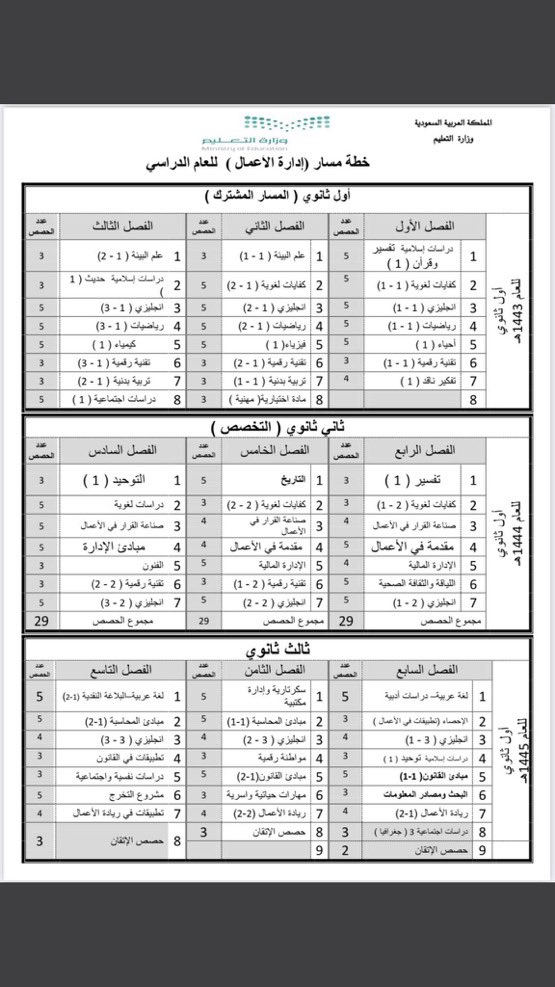 المملكة العربية السعودية
وزارة التعليم
وزارة التعـــليم
Ministry of Education
خطة مسار (إدارة الاعمال ) للعام الدراسي
أول ثانوي ( المسار المشترك )
أول ثانوي للعام 1443هـ
الفصل الأول عدد الحصص الفصل الثاني عدد الحصص الفصل الثالث عدد الحصص
1 دراسات إسلامية تفسير وقرآن ( 1 ) 5 1 علم البيئة ( 1 - 1) 3 1 علم البيئة ( 1 - 2) 3
2 كفايات لغوية ( 1 - 1) 5 2 كفايات لغوية ( 1 - 2) 5 2 دراسات إسلامية حديث ( 1 ) 3
3 انجليزي ( 1 - 1) 5 3 انجليزي ( 1 - 2) 5 3 انجليزي ( 1 - 3) 5
4 رياضيات ( 1 - 1) 5 4 رياضيات ( 1 - 2) 5 4 رياضيات ( 1 - 3) 5
5 أحياء ( 1 ) 5 5 فيزياء( 1 ) 5 5 كيمياء ( 1 ) 5
6 تقنية رقمية ( 1 - 1) 3 6 تقنية رقمية ( 1 - 2) 3 6 تقنية رقمية ( 1 - 3) 3
7 تفكير ناقد ( 1 ) 4 7 تربية بدنية ( 1 - 1) 3 7 تربية بدنية ( 1 - 2) 3
8 8 مادة اختيارية( مهنية ) 3 8 دراسات اجتماعية ( 1 ) 5
ثاني ثانوي ( التخصص )
أول ثانوي للعام 1444هـ
الفصل الرابع عدد الحصص الفصل الخامس عدد الحصص الفصل السادس عدد الحصص
1 تفسير ( 1 ) 3 1 التاريخ 5 1 التوحيد ( 1 ) 3
2 كفايات لغوية ( 2 - 1) 5 2 كفايات لغوية ( 2 - 2) 3 2 دراسات لغوية 5
3 صناعة القرار في الأعمال 4 3 صناعة القرار في الأعمال 4 3 صناعة القرار في الأعمال 5
4 مقدمة في الأعمال 5 4 مقدمة في الأعمال 4 4 مبادئ الإدارة 5
5 الإدارة المالية 4 5 الإدارة المالية 5 5 الفنون 3
6 اللياقة والثقافة الصحية 5 6 تقنية رقمية ( 2 - 1) 3 6 تقنية رقمية ( 2 - 2) 3
7 انجليزي ( 2 - 1) 5 7 انجليزي ( 2 - 2) 5 7 انجليزي ( 2 - 3) 5
مجموع الحصص 29 مجموع الحصص 29 مجموع الحصص 29
ثالث ثانوي
أول ثانوي للعام 1445هـ
الفصل السابع عدد الحصص الفصل الثامن عدد الحصص الفصل التاسع عدد الحصص
1 لغة عربية– دراسات أدبية 5 1 سكرتارية وإدارة مكتبية 5 1 لغة عربية–البلاغة النقدية (1-2) 5
2 الإحصاء (تطبيقات في الأعمال ) 3 2 مبادئ المحاسبة (1-1) 5 2 مبادئ المحاسبة (1-2) 5
3 انجليزي ( 3 - 1) 4 3 انجليزي ( 3 - 2) 4 3 انجليزي ( 3 - 3) 4
4 دراسات إسلامية توحيد ( 1 ) 3 4 مواطنة رقمية 3 4 تطبيقات في القانون 3
5 مبادئ القانون (1-1) 5 5 مبادئ القانون(1-2) 5 5 دراسات نفسية واجتماعية 3
6 البحث ومصادر المعلومات 3 6 مهارات حياتية واسرية 3 6 مشروع التخرج 5
7 ريادة الأعمال (2-1) 4 7 ريادة الأعمال (2-2) 4 7 تطبيقات في ريادة الأعمال 4
8 دراسات اجتماعية 3 ( جغرافيا ) 3 8 حصص الإتقان 3 8 حصص الإتقان 3
9 حصص الإتقان 2 9